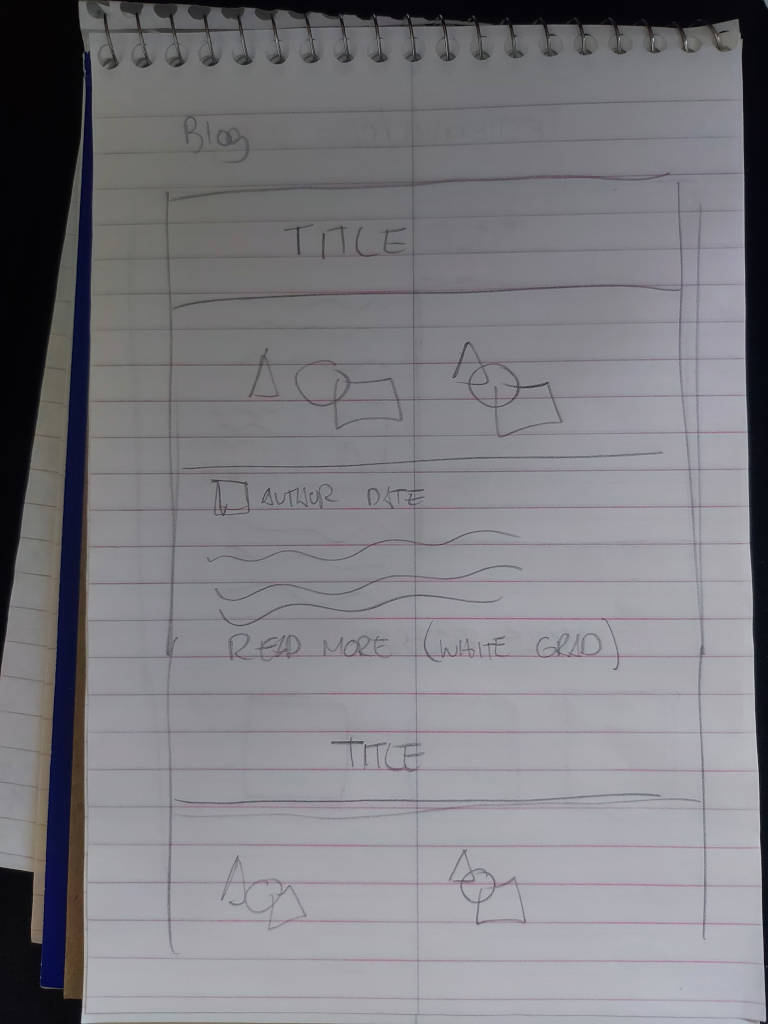 Blog
TITLE
AUTHOR DATE
READ MORE (WHITE GRAD)
TITLE